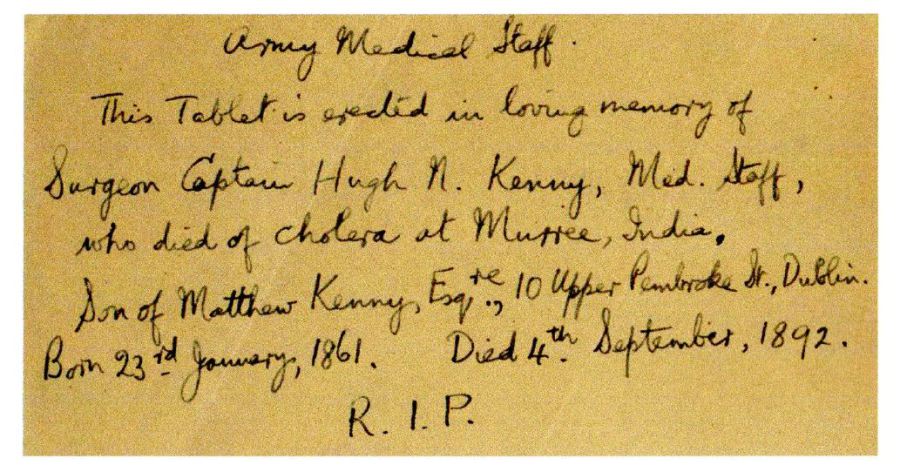 Army Medical Staff.
This Tablet is erected in loving memory of
Surgeon Captain Hugh N. Kenny, Med. Staff,
who died of cholera at Murree, India.
Son of Matthew Kenny, Esqre., 10 Upper Pembroke St., Dublin.
Born 23rd January, 1861. Died 4th. September, 1892.
R. I. P.